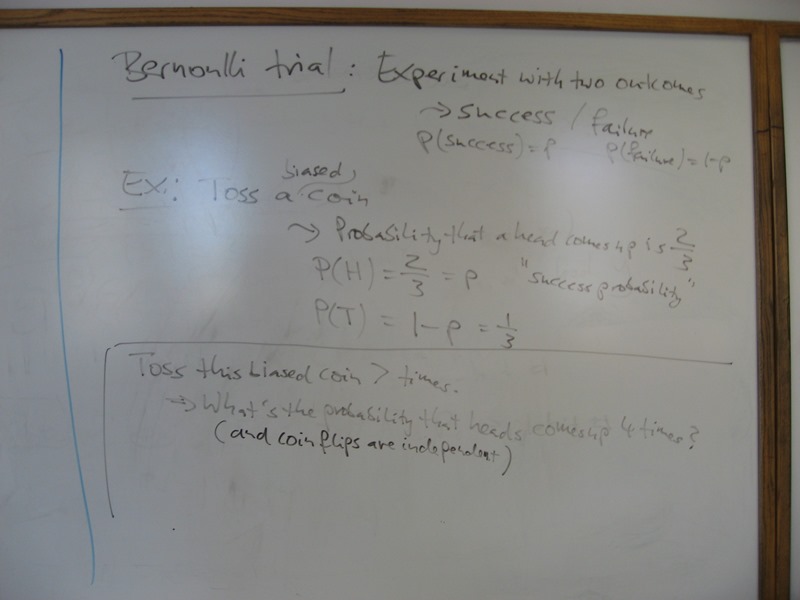 Bernoulli trial: Experiment with two outcomes
→ success / failure
P(success)=p P(failure)=1-p
Ex: Toss a biased coin
→ Probability that a head comes up is 2/3
P(H) = 2/3 = p "success probability"
P(T) = 1-p = 1/3
Toss this biased coin 7 times.
→ What's the probability that heads comes up 4 times?
(and coin flips are independent)